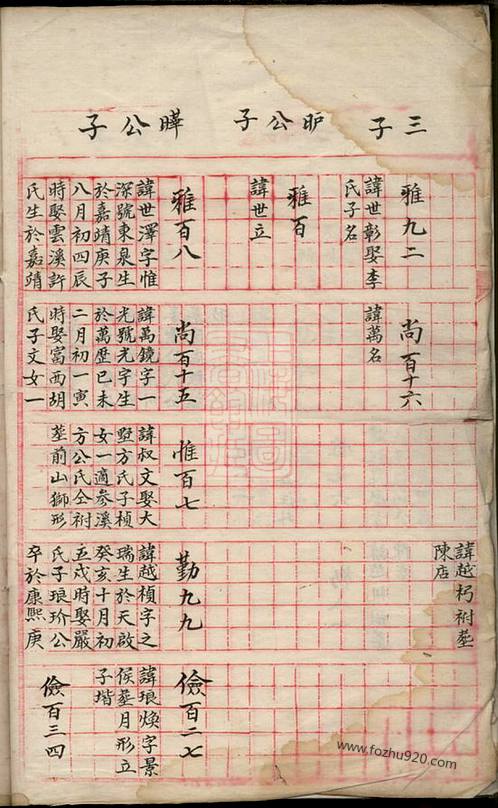 三子
昈公子
曄公子
雅九二
諱世彰娶李
氏子名
雅百
諱世立
雅百八
諱世澤字惟
深號東泉生
於嘉靖庚子
八月初四辰
時娶雲溪許
氏生於嘉靖
尚百十六
諱萬名
尚百十五
諱萬鏡字一
光號光字生
於萬歷已未
二月初一寅
時娶富西胡
氏子文女一
惟百七
諱叔文娶大
墅方氏子楨
女一適參溪
方公氏仝祔
塟前山獅形
諱越朽祔塟
陳店
勤九九
諱越楨字之
瑞生於天啟
癸亥十月初
五戌時娶嚴
氏子琅玠公
卒於康熙庚
儉百二七
諱琅煥字景
侯塟月形立
子堦
儉百三四
www.fozhu920.com